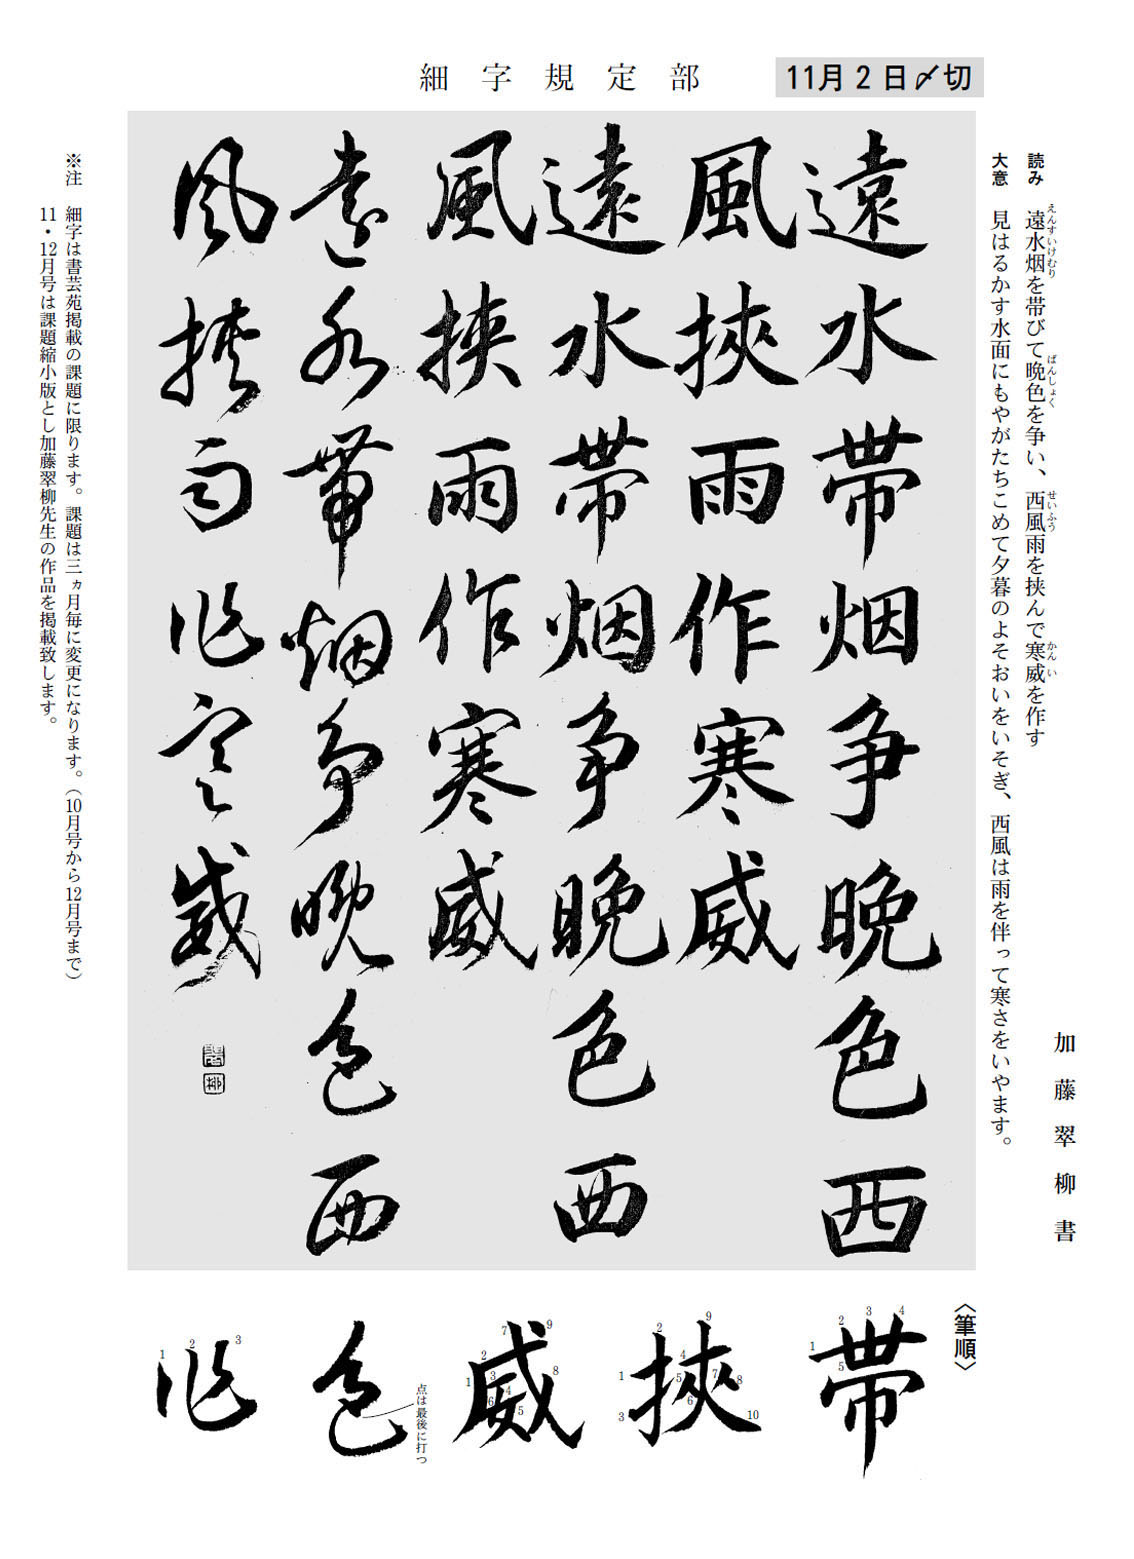 細字規定部
11月2日〆切
読み 遠水烟を帯びて晩色を争い、西風雨を挟んで寒威を作す
えんすいけむり
ばんしょく
せいふう
かんい
大意 見はるかす水面にもやがたちこめて夕暮のよそおいをいそぎ、西風は雨を伴って寒さをいやます。
加藤翠柳書
遠水帯烟争晩色西
風挾雨作寒威
遠水帯烟争晩色西
風挾雨作寒威
遠水帯烟争晩色西
風挾雨作寒威
※注 細字は書芸苑掲載の課題に限ります。課題は三ヵ月毎に変更になります。（10月号から12月号まで）
11・12月号は課題縮小版とし加藤翠柳先生の作品を掲載致します。
〈筆順〉
帯
1 2 3 4 5
挾
1 2 3 4 5 6 7 8 9 10
威
1 2 3 4 5 6 7 8 9
色
点は最後に打つ
作
1 2 3